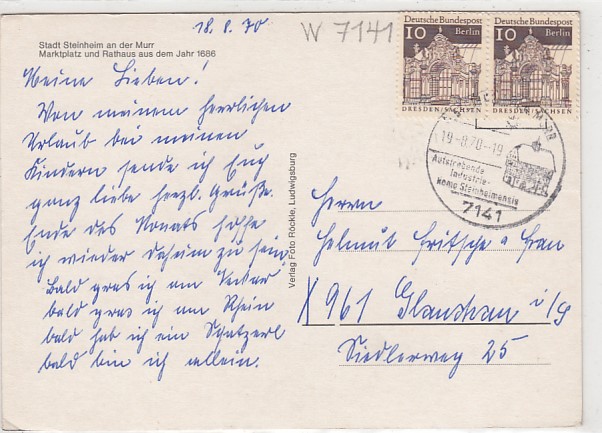 18.8.70
W 7141
Stadt Steinheim an der Murr
Marktplatz und Rathaus aus dem Jahr 1686
Meine Lieben!
Von meinem herrlichen
Urlaub bei meinen
Kindern sende ich Euch
ganz liebe herzl. Grüße.
Ende des Monats hoffe
ich wieder daheim zu sein
Bald gras ich am Neckar
bald gras ich am Rhein
bald hab ich ein Schatzerl
bald bin ich allein.
Verlag Foto Röckle, Ludwigsburg
Deutsche Bundespost
10 Berlin
DRESDEN/SACHSEN
Deutsche Bundespost
10 Berlin
DRESDEN/SACHSEN
19.-8.70-19
Aufstrebende
Industrie-
Homo Steinheimensis
7141
Herrn
Helmut Fritsche u Frau
X 961 Glauchau i/s
Siedlerweg 25